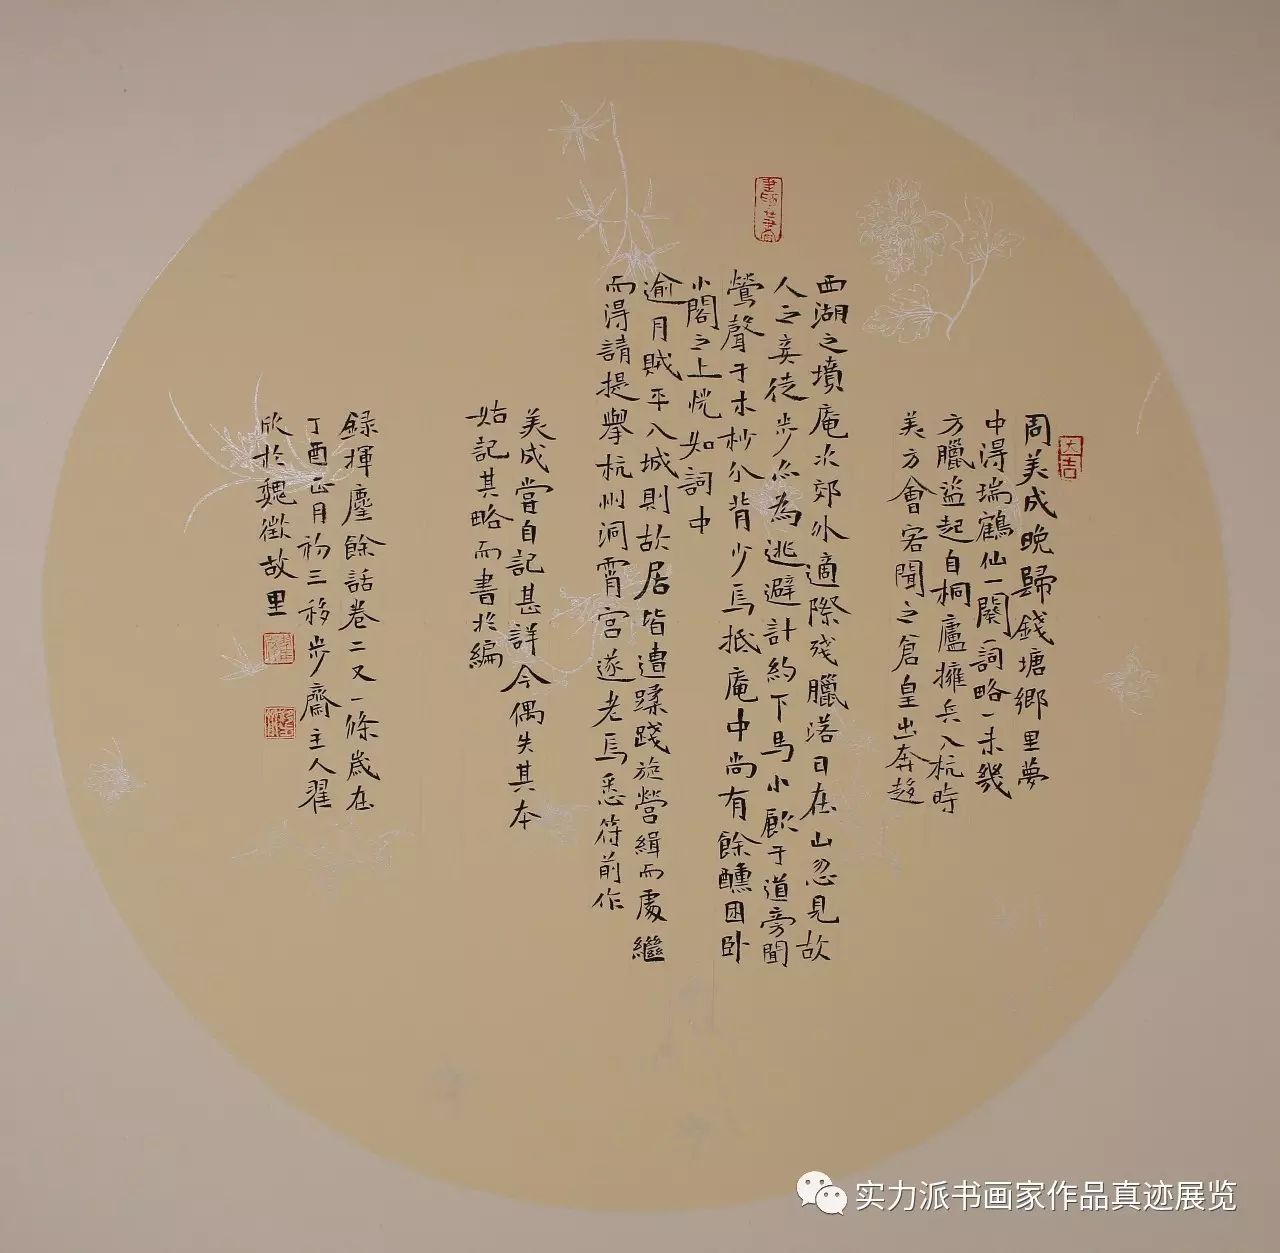 周美成晚歸錢塘鄉里夢
中得瑞鶴仙一闋詞略一未幾
方臘盜起自桐廬擁兵入杭時
美方會客聞之倉皇出奔趍
西湖之墳庵次郊外適際殘臘落日在山忽見故
人之妾徒步亦為逃避計約下馬小飲于道旁聞
鶯聲于木杪分背少焉抵庵中尚有餘醺困卧
小閣之上恍如詞中
逾月賊平入城則故居皆遭蹂踐旋營緝而處繼
而得請提舉杭州洞霄宮遂老焉悉符前作
美成嘗自記甚詳今偶失其本
姑記其略而書於編
錄揮麈餘話卷二又一條歲在
丁酉正月初三移步齋主人翟
欣於魏徵故里
大吉
实力派书画家作品真迹展览